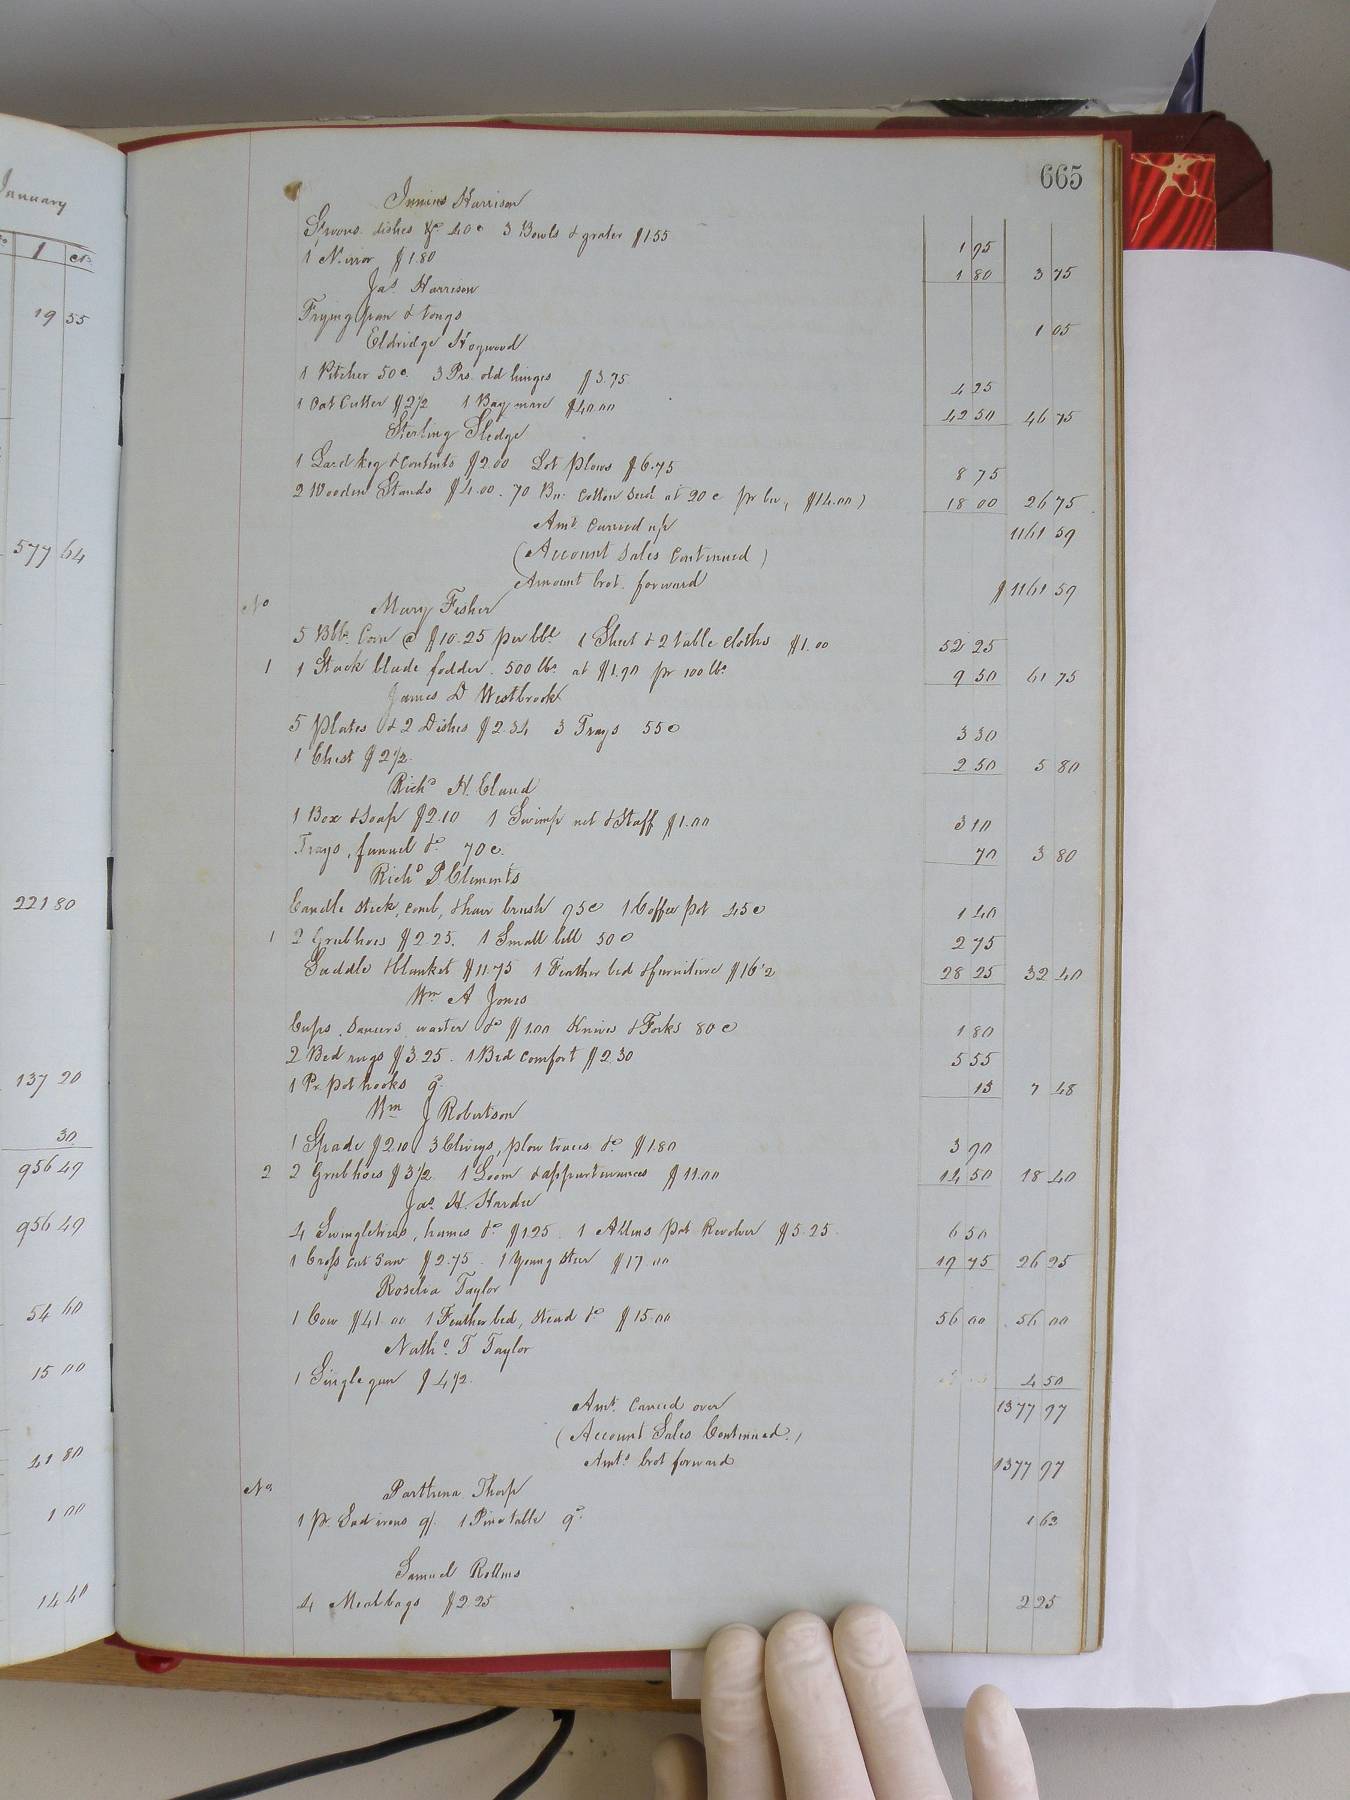 January
$ cts
19 55
577 64
221 80
137 20
30
956 49
956 49
54 60
15 00
41 80
1 00
14 40
665
Junius Harrison
Spoons dishes &c 40c 3 Bowls & grater $1.55 1 95
1 Mirror $1.80 1 80 3 75
Jas. Harrison
Frying pan & tongs 1 05
Eldridge Hogwood
1 Pitcher 50c. 3 Prs. old hinges $3.75 4 25
1 Oat Cutter $2½ 1 Bay mare $40.00 42 50 46 75
Sterling Sledge
1 Lard keg & Contents $2.00 Lot Plows $6.75 8 75
2 Wooden Stands $4.00. 70 Bu. Cotton Seed at 20c pr bu, $14.00) 18 00 26 75
Amt. Carried up 1161 59
(Account Sales Continued)
Amount brot. forward $1161 59
No
Mary Fisher
5 Bbls. Corn @ $10.25 per bbl 1 Sheet & 2 table cloths $1.00 52 25
1 1 Stack blade fodder. 500 lbs. at $1.90 pr 100 lbs. 9 50 61 75
James D Westbrook
5 Plates & 2 Dishes $2.34 3 Trays 55c 3 30
1 Chest $2½. 2 50 5 80
Richd H. Eland
1 Box & Soap $2.10 1 Swimp net & Staff $1.00 3 10
Trays, funnel &c 70c. 70 3 80
Richd P Clements
Candle stick, comb, & hair brush 95c 1 Coffee Pot 45c 1 40
1 2 Grubhoes $2.25. 1 Small bell 50c 2 75
Saddle & blanket $11.75 1 Feather bed & furniture $16½ 28 25 32 40
Wm A Jones
Cups, Saucers waiter &c $1.00 Knives & Forks 80c 1 80
2 Bed rugs $3.25. 1 Bed comfort $2.30 5 55
1 Pr. pot hooks 13 7 48
Wm J Robertson
1 Spade $2.10 3 Cliveys, plow traces &c $1.80 3 90
2 2 Grubhoes $3½. 1 Loom & appurtenances $11.00 14 50 18 40
Jas. H. Hardee
4 Swingletrees, hames &c $1.25. 1 Allens Pat Revolver $5.25. 6 50
1 Cross cut Saw $2.75. 1 Young steer $17.00 19 75 26 25
Rosetta Taylor
1 Cow $41.00 1 Feather bed, stead &c $15.00 56 00 56 00
Nathl. T Taylor
1 Single gun $4½. 4 50
Amt. Carried over 1377 97
(Account Sales Continued.)
Amts. brot forward 1377 97
No.
Parthena Tharp
1 Pr. Sad irons 1 Pine table 1 63
Samuel Rollins
4 Meal bags $2.25 2 25